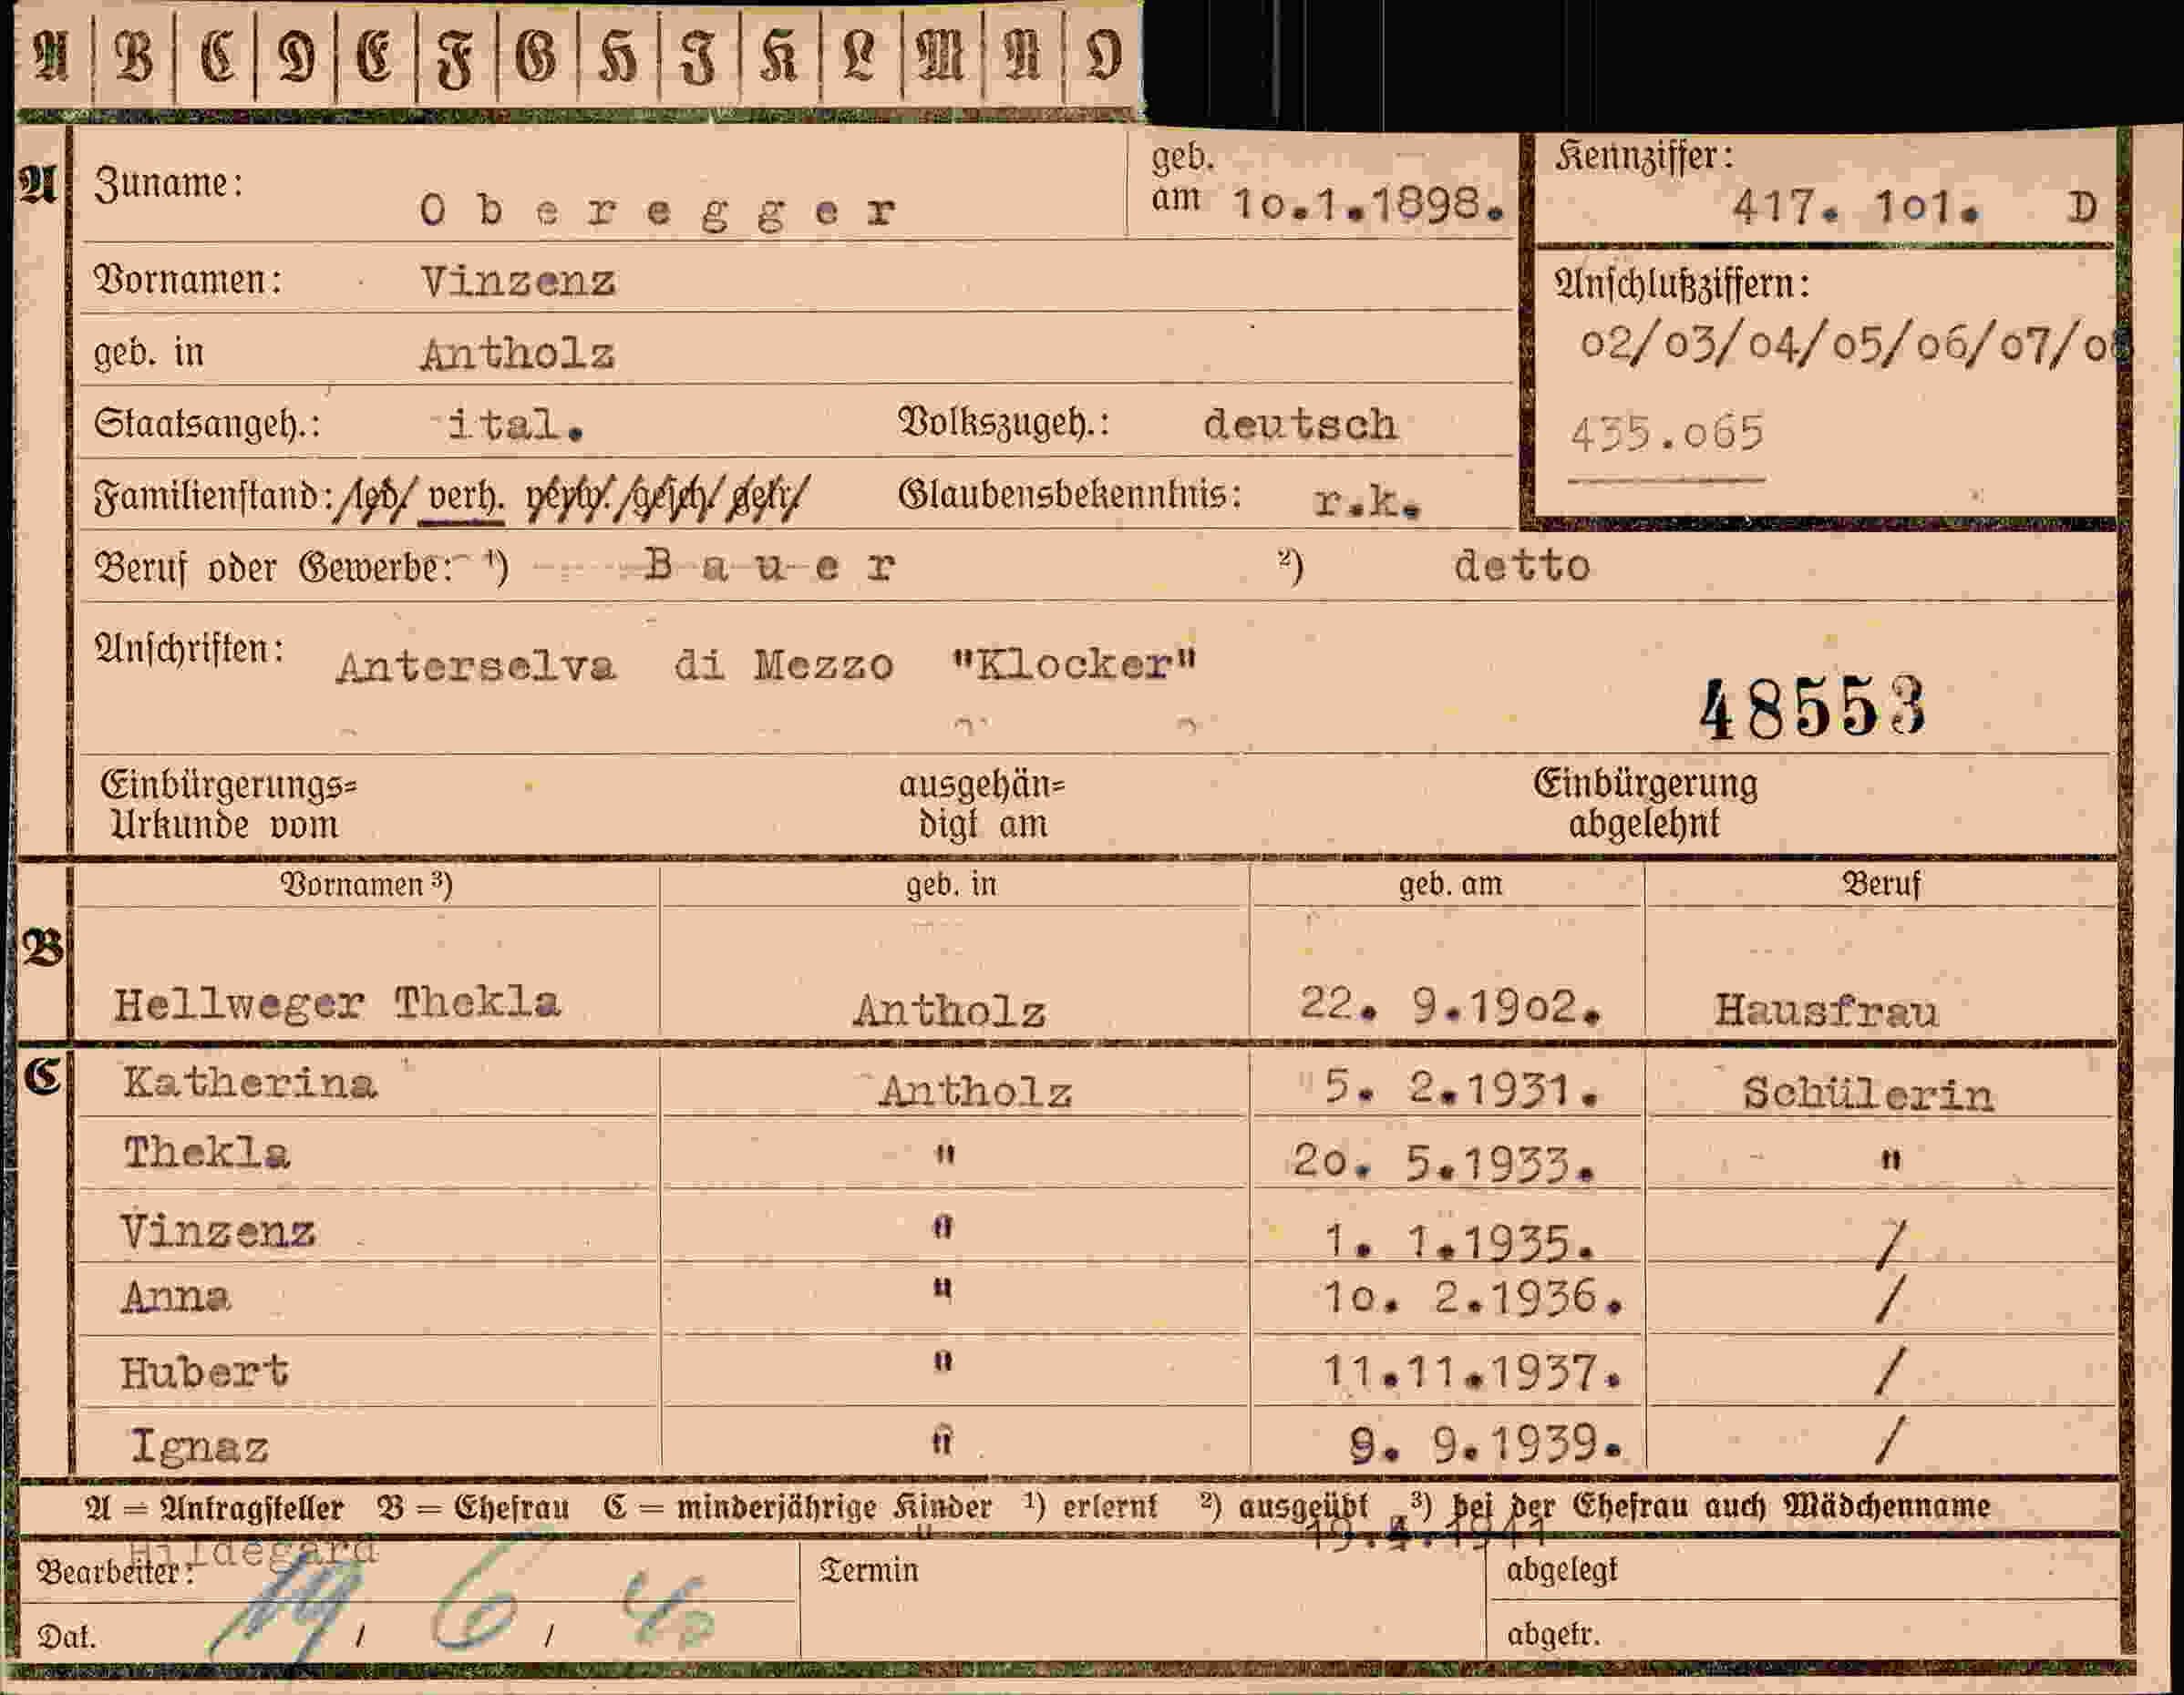 A B C D E F G H I K L M N O
A Zuname: Oberegger geb. am 10.1.1898. Kennziffer: 417. 101. D
Vornamen: Vinzenz
Anschlußziffern:
geb. in Antholz 02/03/04/05/06/07/08
Staatsangeh.: ital. Volkszugeh.: deutsch 435.065
Familienstand: led. verh. verw. gesch. getr. Glaubensbekenntnis: r.k.
Beruf oder Gewerbe: 1) Bauer 2) detto
Anschriften: Anterselva di Mezzo "Klocker"
48553
Einbürgerungs= ausgehän= Einbürgerung
Urkunde vom digt am abgelehnt
Vornamen 3) geb. in geb. am Beruf
B
Hellweger Thekla Antholz 22. 9.1902. Hausfrau
C Katherina Antholz 5. 2.1931. Schülerin
Thekla " 20. 5.1933. "
Vinzenz " 1. 1.1935. /
Anna " 10. 2.1936. /
Hubert " 11.11.1937. /
Ignaz " 9. 9.1939. /
A = Antragsteller B = Ehefrau C = minderjährige Kinder 1) erlernt 2) ausgeübt 3) bei der Ehefrau auch Mädchenname
Hildegard " 19.4.1941
Bearbeiter: Termin abgelegt
Dat. 19 / 6 / 40 abgetr.